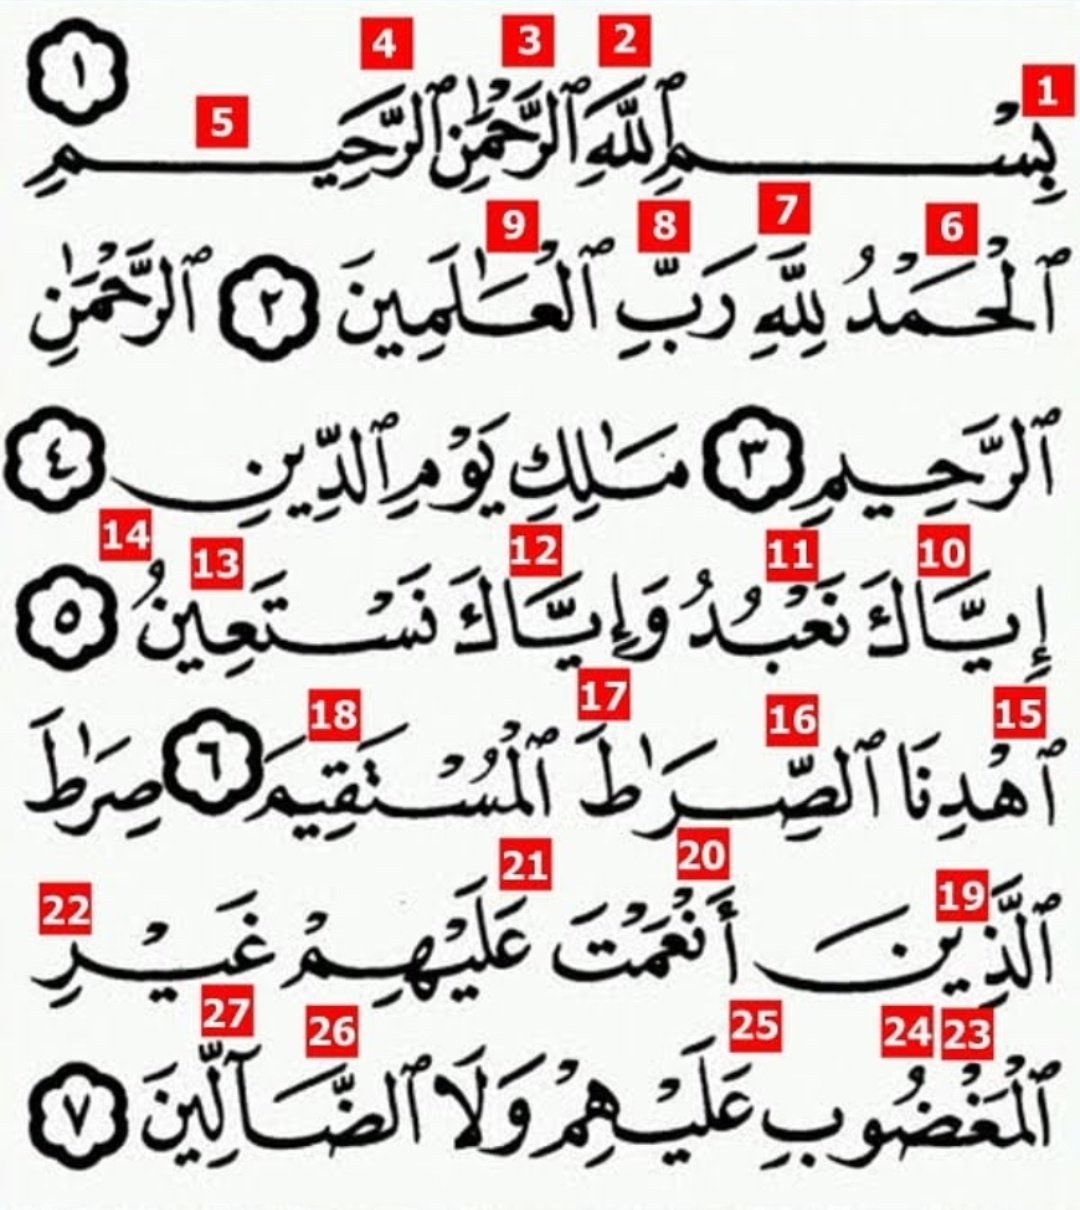 1 2 3 4 5
بِسْمِ ٱللَّهِ ٱلرَّحْمَٰنِ ٱلرَّحِيمِ ١
6 7 8 9
ٱلْحَمْدُ لِلَّهِ رَبِّ ٱلْعَٰلَمِينَ ٢ ٱلرَّحْمَٰنِ
ٱلرَّحِيمِ ٣ مَٰلِكِ يَوْمِ ٱلدِّينِ ٤
10 11 12 13 14
إِيَّاكَ نَعْبُدُ وَإِيَّاكَ نَسْتَعِينُ ٥
15 16 17 18
ٱهْدِنَا ٱلصِّرَٰطَ ٱلْمُسْتَقِيمَ ٦ صِرَٰطَ
19 20 21 22
ٱلَّذِينَ أَنْعَمْتَ عَلَيْهِمْ غَيْرِ
23 24 25 26 27
ٱلْمَغْضُوبِ عَلَيْهِمْ وَلَا ٱلضَّآلِّينَ ٧